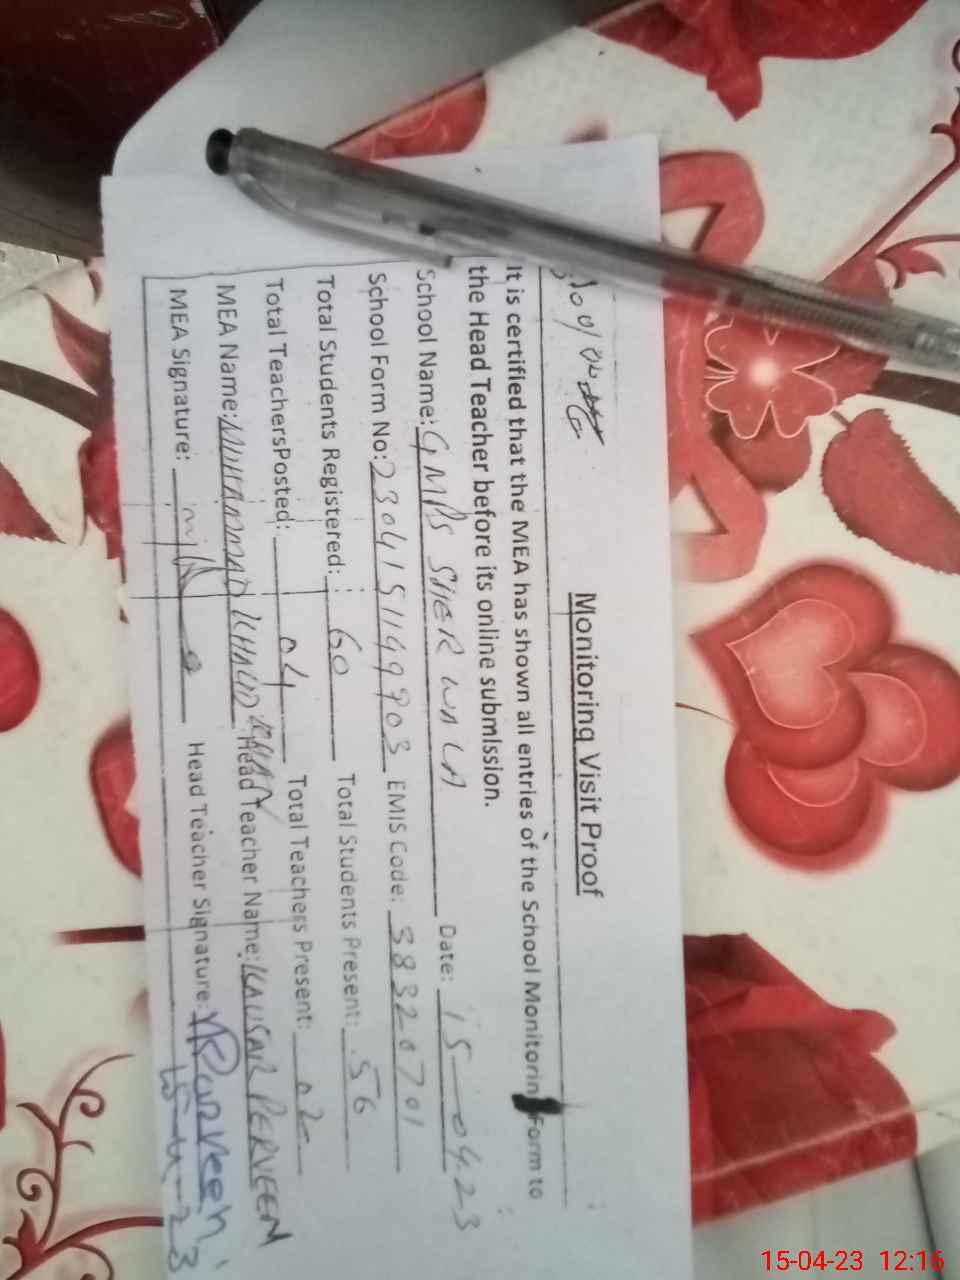 Monitoring Visit Proof
It is certified that the MEA has shown all entries of the School Monitorin Form to
the Head Teacher before its online submission.
School Name: GMPS SHER WALA Date: 15-04.23
School Form No: 2304151149703 EMIS Code: 38320701
Total Students Registered: 60 Total Students Present: 56
Total TeachersPosted: 04 Total Teachers Present: 02
MEA Name: MUHAMMAD KHALID KHAN Head Teacher Name: KAUSAR PERVEEN
MEA Signature: Head Teacher Signature: Parveen
15-4-23
15-04-23 12:16